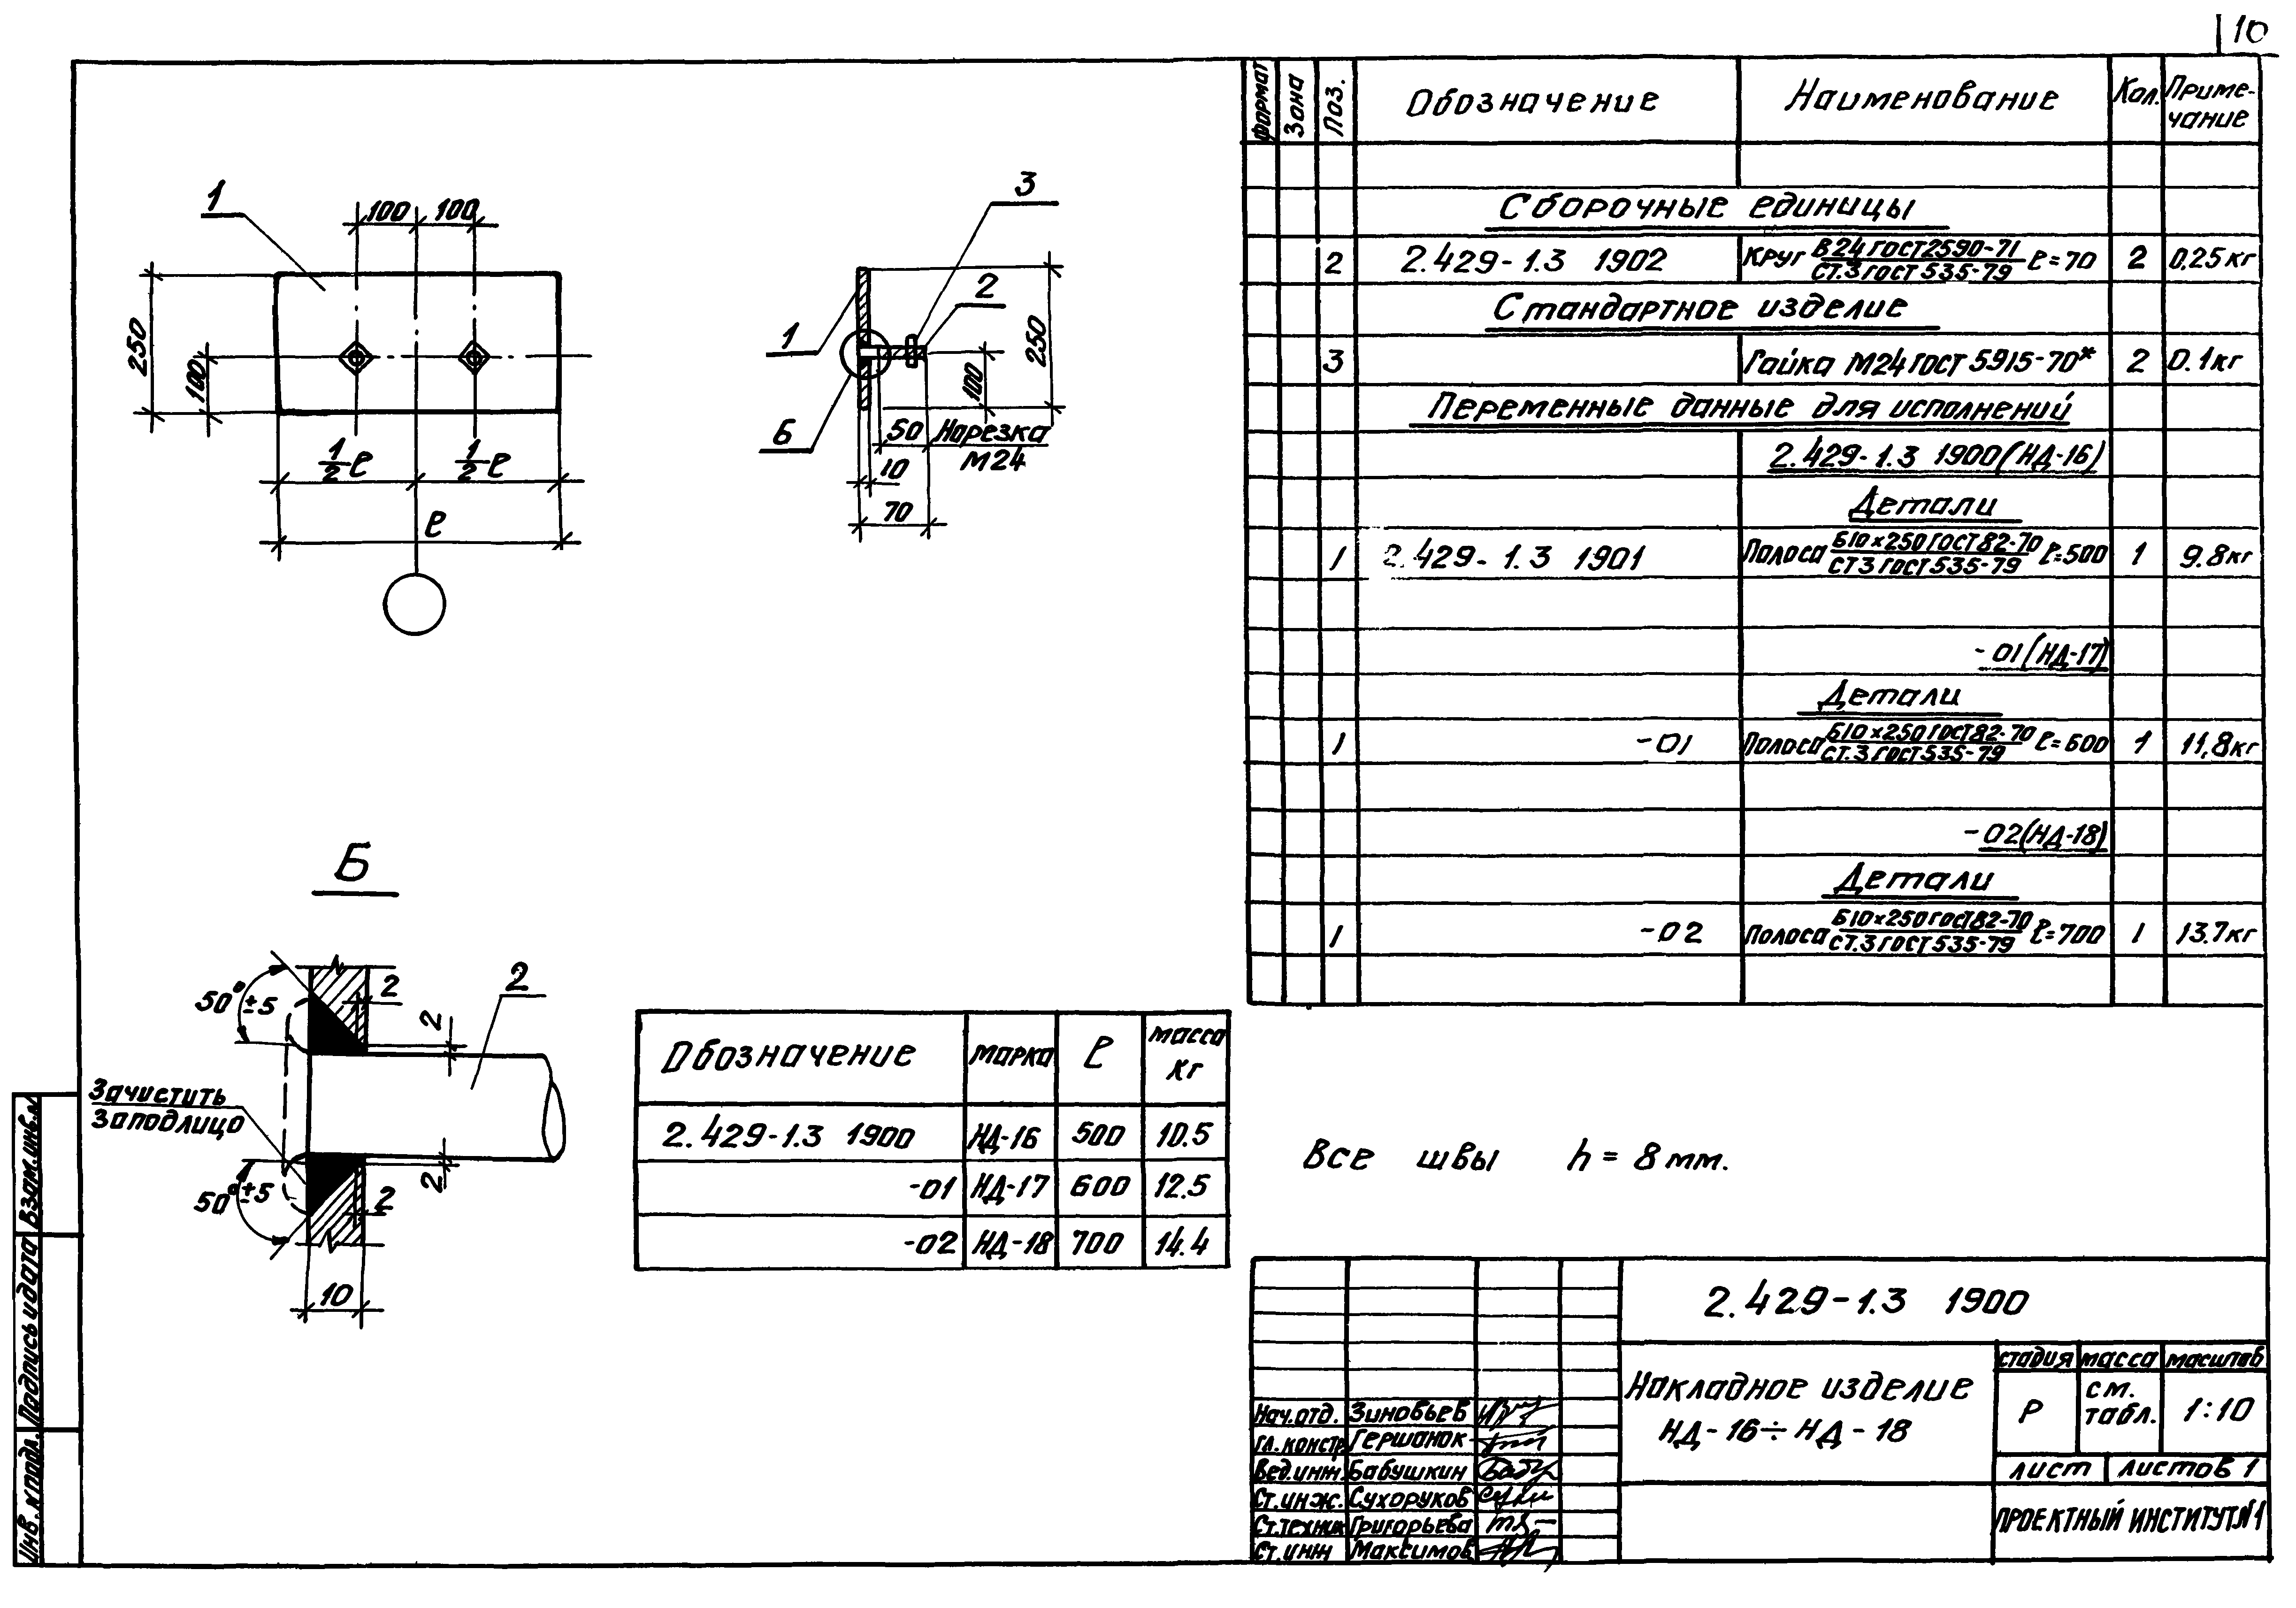 10
формат Зона Поз. Обозначение Наименование Кол. Приме-
чание
Сборочные единицы
2 2.429-1.3 1902 Круг В24 ГОСТ2590-71 ℓ=70 2 0,25кг
СТ.3 ГОСТ 535-79
Стандартное изделие
3 Гайка М24 ГОСТ 5915-70* 2 0.1кг
Переменные данные для исполнений
2.429-1.3 1900(НД-16)
Детали
1 2.429-1.3 1901 Полоса Б10×250 ГОСТ 82-70 ℓ=500 1 9.8кг
СТ 3 ГОСТ 535-79
-01(НД-17)
Детали
1 -01 Полоса Б10×250 ГОСТ 82-70 ℓ=600 1 11,8кг
СТ.3 ГОСТ 535-79
-02(НД-18)
Детали
1 -02 Полоса Б10×250 ГОСТ 82-70 ℓ=700 1 13.7кг
СТ.3 ГОСТ 535-79
1
100 100
250
100
1/2 ℓ 1/2 ℓ
ℓ
3
2
1
Б
250
100
50 Нарезка
М24
10
70
Б
50°±5
2
2
2
Зачистить
заподлицо
50°±5
2
2
10
Обозначение марка ℓ масса
кг
2.429-1.3 1900 НД-16 500 10.5
-01 НД-17 600 12.5
-02 НД-18 700 14.4
Все швы h = 8 мм.
2.429-1.3 1900
Накладное изделие
НД-16÷НД-18
стадия масса масштаб
Р см. 1:10
табл.
лист листов 1
ПРОЕКТНЫЙ ИНСТИТУТ №1
Нач.отд. Зиновьев
Гл.констр. Гершанок
Вед.инж. Бабушкин
Ст.инж. Сухоруков
Ст.техник Григорьева
Ст.инж Максимов
Взам.инв.№
Подпись и дата
Инв.№ подл.